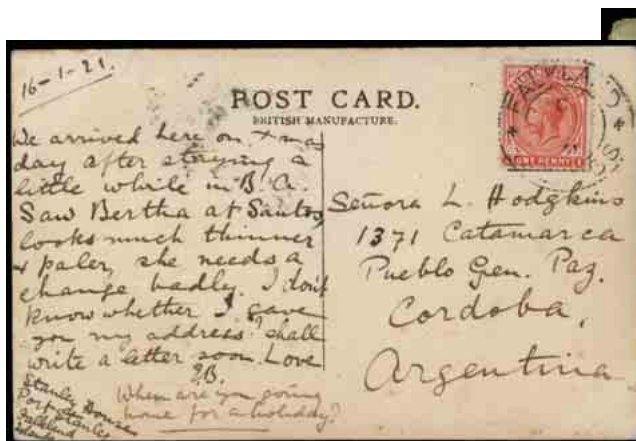 16-1-21.
POST CARD.
BRITISH MANUFACTURE.
We arrived here on Xmas
day after staying a
little while in B.A.
Saw Bertha at Santos,
looks much thinner
& paler, she needs a
change badly. I don't
know whether I gave
you my address? shall
write a letter soon. Love
B.
When are you going
home for a holiday?
Stanley House
Port Stanley
Falkland
Islands
ONE PENNY
FALKLAND
Señora L. Hodgkins
1371 Catamarca
Pueblo Gen. Paz.
Cordoba,
Argentina